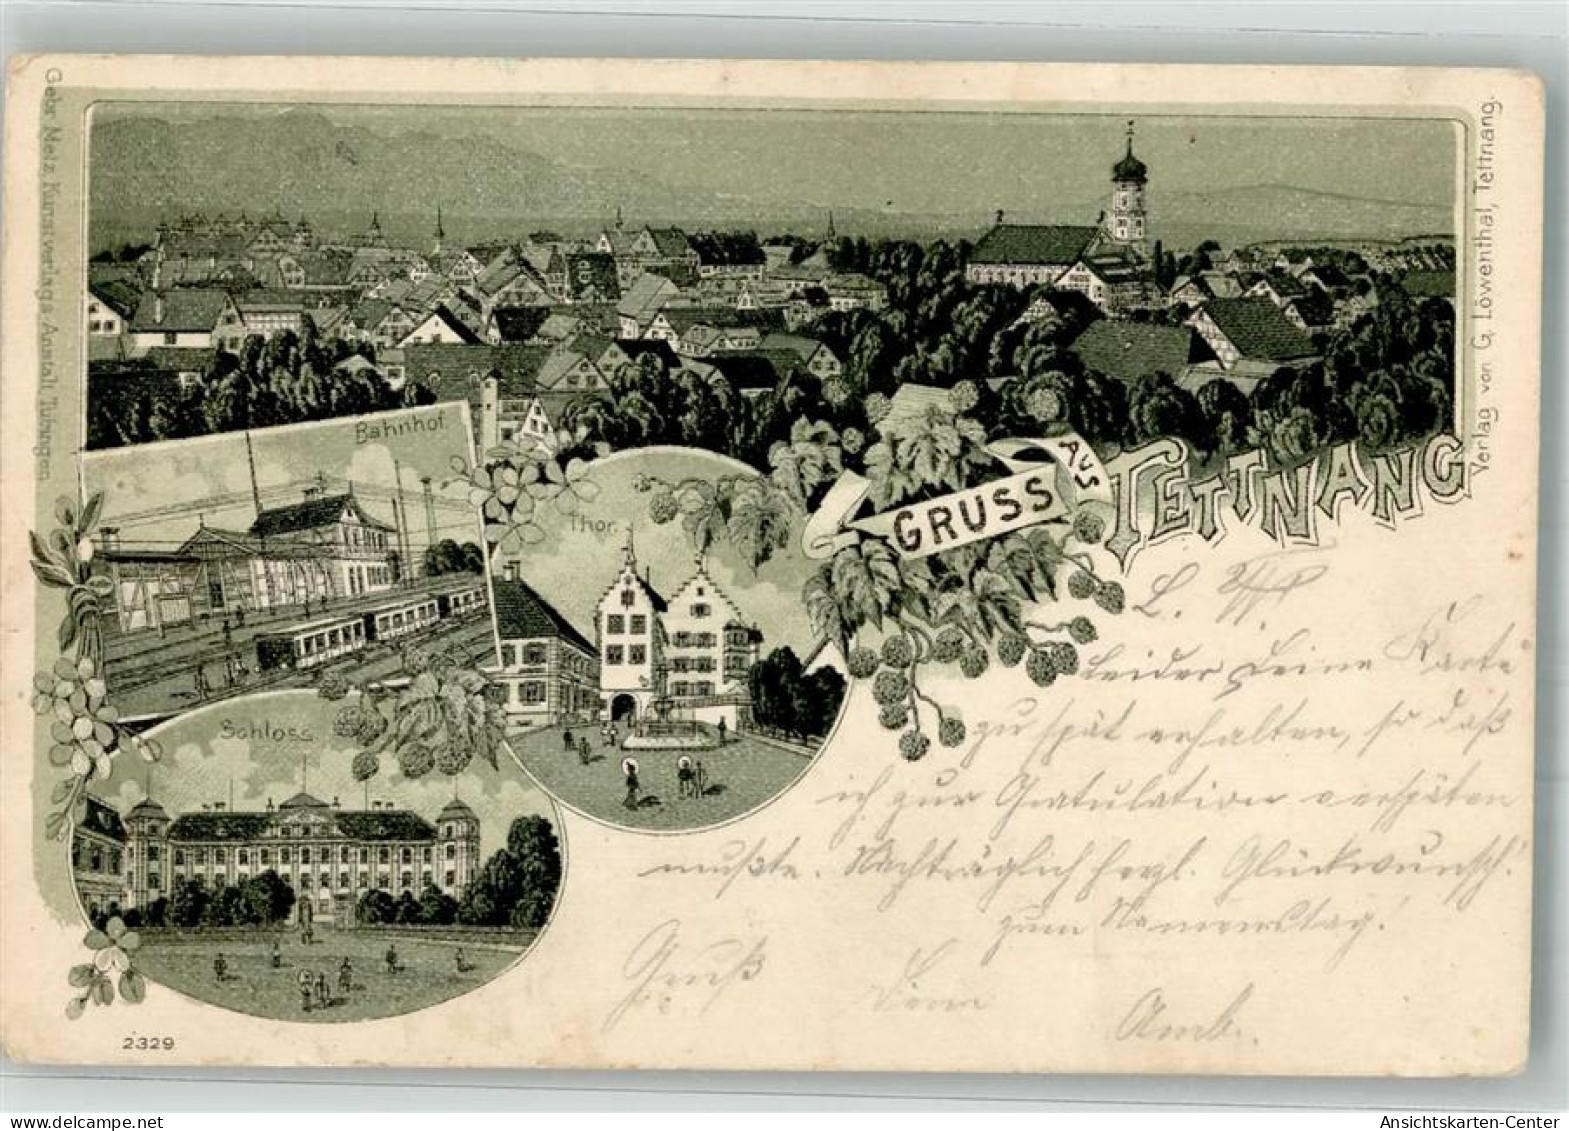 Gebr. Metz Kunstverlags Anstalt Tübingen
Verlag von G. Löwenthal, Tettnang.
Bahnhof
Thor.
Schloss
GRUSS
AUS
TETTNANG
L.
Leider Deine Karte
zu spät erhalten, so daß
ich zur Gratulation verspäten
mußte. Nachträglich herzl. Glückwunsch!
zum Namenstag!
Gruß
Amb.
2329
AnsichtsKarten-Center